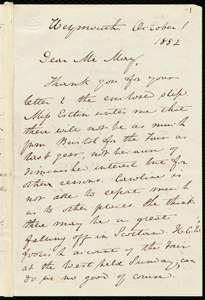 Weymouth. October 1
1852
Dear Mr May,
Thank you for your
letter & the enclosed slip.
Miss Estlin writes me that
there will not be as much
from Bristol for the Fair as
last year, not because of
diminished interest but for
other causes. Caroline is
not able to report much
as to other places. She thinks
there may be a great
falling off in Scotland.
account of the Fair
at the Westfield Sunday, can
do us no good of course.